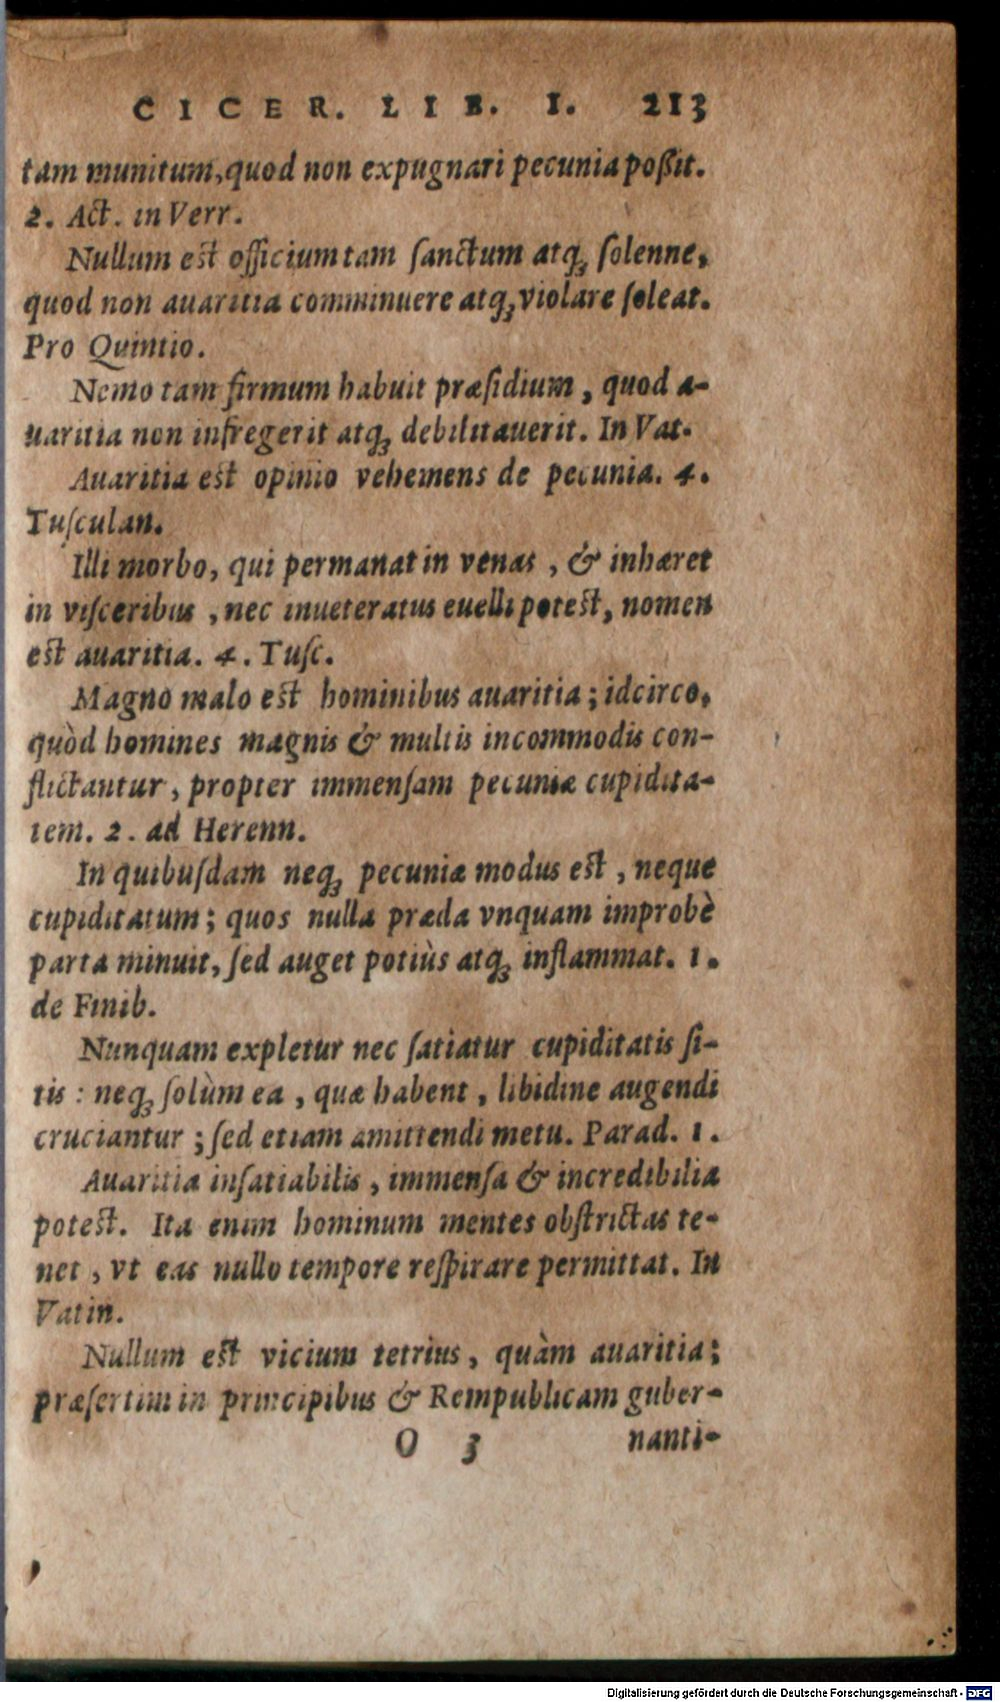 CICER. LIB. I. 213
tam munitum, quod non expugnari pecunia poßit.
2. Act. in Verr.
Nullum est officium tam ſanctum atq; ſolenne,
quod non auaritia comminuere atq; violare ſoleat.
Pro Quintio.
Nemo tam firmum habuit præſidium, quod a-
uaritia non infregerit atq; debilitauerit. In Vat.
Auaritia est opinio vehemens de pecunia. 4.
Tuſculan.
Illi morbo, qui permanat in venas, & inhæret
in viſceribus, nec inueteratus euelli potest, nomen
est auaritia. 4. Tuſc.
Magno malo est hominibus auaritia; idcirco,
quòd homines magnis & multis incommodis con-
flictantur, propter immenſam pecuniæ cupidita-
tem. 2. ad Herenn.
In quibuſdam neq; pecuniæ modus est, neque
cupiditatum; quos nulla præda vnquam improbè
parta minuit, ſed auget potiùs atq; inflammat. 1.
de Finib.
Nunquam expletur nec ſatiatur cupiditatis ſi-
tis: neq; ſolùm ea, quæ habent, libidine augendi
cruciantur; ſed etiam amittendi metu. Parad. 1.
Auaritia inſatiabilis, immenſa & incredibilia
potest. Ita enim hominum mentes obſtrictas te-
net, vt eas nullo tempore reſpirare permittat. In
Vatin.
Nullum est vicium tetrius, quàm auaritia;
præſertim in principibus & Rempublicam guber-
O 3 nanti-
Digitalisierung gefördert durch die Deutsche Forschungsgemeinschaft - DFG